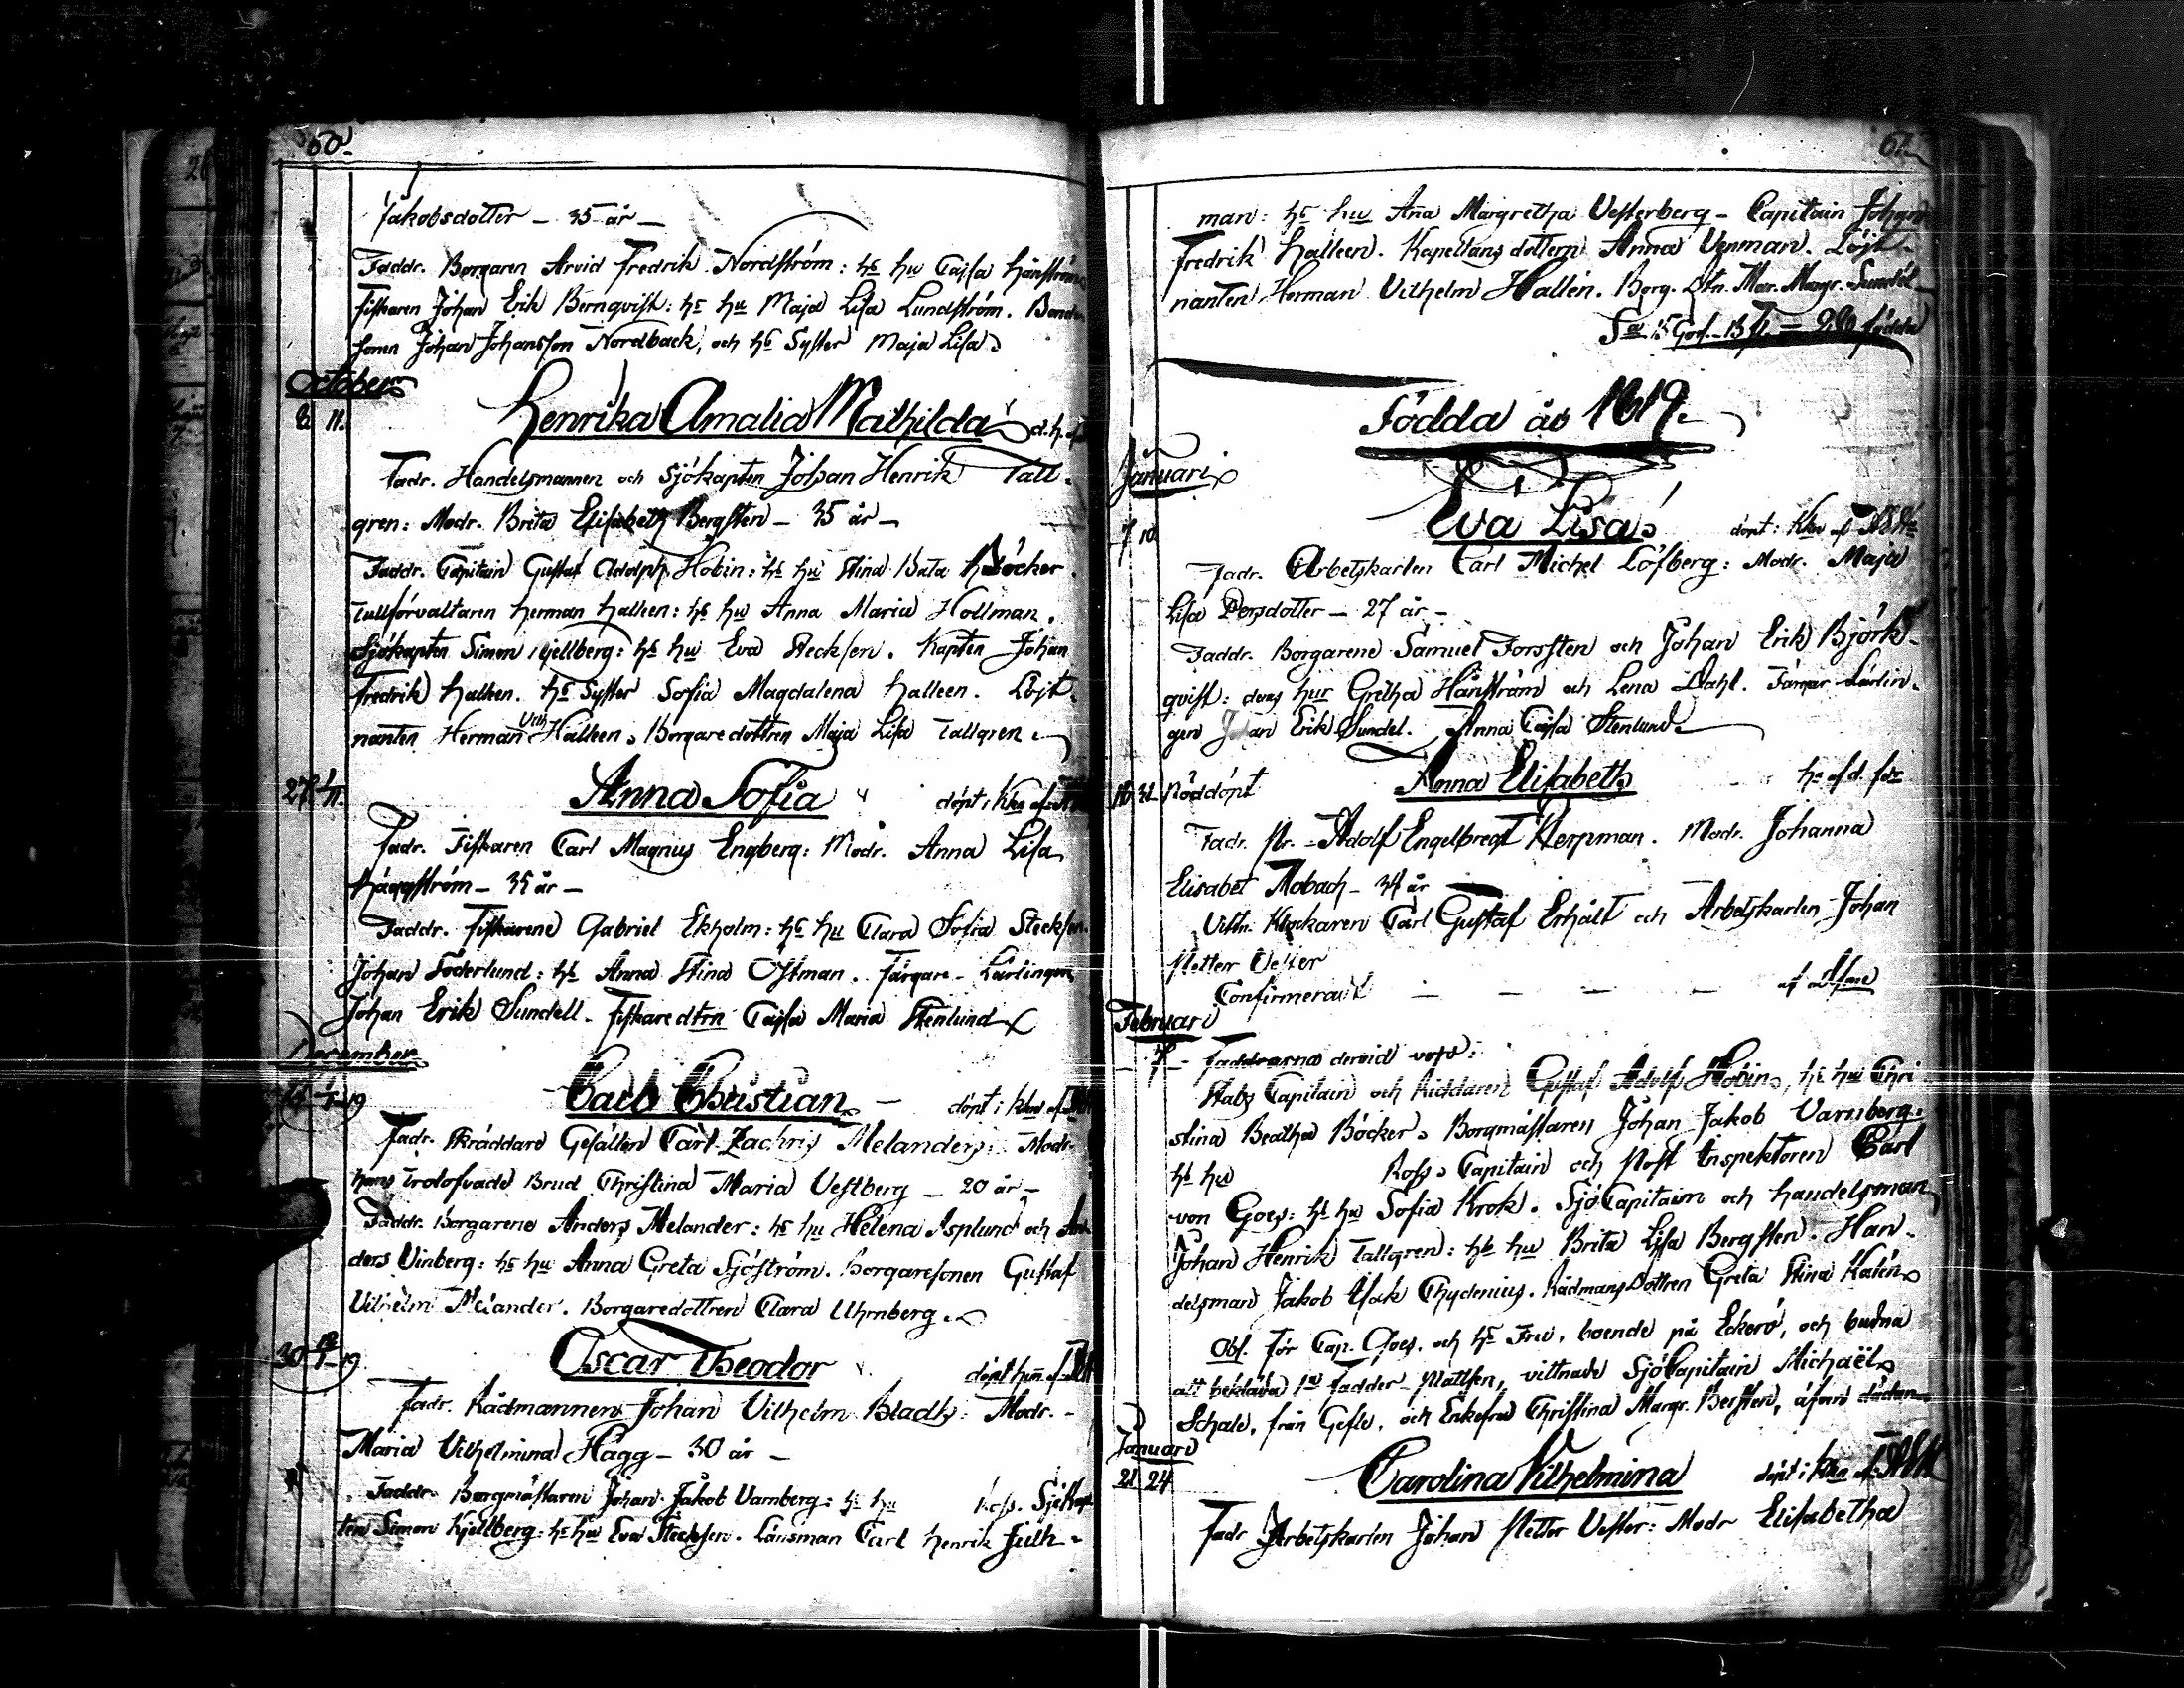 60.
Jakobsdotter – 35 år –
Faddr. Borgaren Arvid Fredrik Nordström: hs hu Cajsa
Fiskaren Johan Erik Bernqvist: hs hu Maja Lisa Lundström. Bonde
sonen Johan Johansson Nordback, och hs Syster Maja Lisa
October
8 11. Henrika Amalia Mathilda d. h. af
Fadr. Handelsmannen och Sjökapten Johan Henrik Tall-
gren: Modr. Brita Elisabeth Bergsten – 35 år –
Faddr. Capitain Gustaf Adolph Hobin: hs hu Stina Bata Böcker.
Tullförvaltaren Herman Halleen: hs hu Anna Maria Hollman.
Sjökapten Simon Kjellberg: hs hu Eva Stecksen. Kapten Johan
Fredrik Halleen. hs Syster Sofia Magdalena Halleen. Löjt-
nanten Herman Vilh Halleen. Borgaredottren Maja Lisa Tallgren
27 Anna Sofia döpt i kkn af
Fadr. Fiskaren Carl Magnus Engberg: Modr. Anna Lisa
Häggström – 35 år –
Faddr. Fiskarene Gabriel Ekholm: hs hu Clara Sofia Stecksen.
Johan Söderlund: hs Anna Stina Östman. Färgare-Lärlingen
Johan Erik Sundell. Fiskaredtrn Cajsa Maria Stenlund
December
Carl Christian – döpt i kkn af
Fadr. Skräddare Gesällen Carl Zachris Melander: Modr.
hans trolofvade Brud Christina Maria Vestberg – 20 år –
Faddr. Borgarene Anders Melander: hs hu Helena Asplund och An-
ders Vinberg: hs hu Anna Greta Sjöström. Borgaresonen Gustaf
Vilhelm Melander. Borgaredottren Clara Uhrnberg.
30 Oscar Theodor döpt hm af
Fadr. Rådmannen Johan Vilhelm Bladh: Modr. –
Maria Vilhelmina Hägg – 30 år –
Faddr. Borgmästaren Johan Jakob Varnberg: hs hu Ross. Sjökap-
ten Simon Kjellberg: hs hu Eva Stecksen. Länsman Carl Henrik Juth-
61.
man: hs hu Ana Margretha Vesterberg – Capitain Johan
Fredrik Halleen. Kapellans dottern Anna Venman. Löjt-
nanten Herman Vilhelm Hallén. Borg. Dtn. Mar. Margr. Sundél
Sa 15 Goss. 13 fl. = 28 födda
Födda år 1819.
Januari
7 10 Eva Lisa döpt: kkn af
Fadr. Arbetskarlen Carl Michel Löfberg: Modr. Maja
Lisa Persdotter – 27 år –
Faddr. Borgarene Samuel Forssten och Johan Erik Björk-
qvist: deras hur Gretha Hänström och Lena Dahl. Färgar Lärlin-
gen Johan Erik Sundel. Anna Cajsa Stenlund
Nöddöpt Anna Elisabeth
Fadr. Hr. Adolf Engelbregt Herpman. Modr. Johanna
Elisabet Mobach – 34 år
Vittn. Klockaren Carl Gustaf Erhålt och Arbetskarlen Johan
Petter Vester
Confirmerad – – – – af
Februari
7 – Faddrarna dervid voro:
Stabs Capitain och Riddaren Gustaf Adolf Hobin, hs hu Chri
stina Beatha Böcker. Borgmästaren Johan Jakob Varnberg:
hs hu Ross. Capitain och Post Inspektoren Carl
von Goes: hs hu Sofia Krok. Sjö Capitain och handelsman
Johan Henrik Tallgren: hs hu Brita Lisa Bergsten. Han-
delsman Jakob Isak Chydenius. Rådmans Dottren Greta Stina Kalén
Obs. för Cap. Goes. och hs Fru, boende på Eckerö, och budna
att bekläda Fadder-Platsen, vittnade Sjö Capitain Michaël
Schale, från Gefle, och Enkefru Christina Margr. Bersten, äfven dädan
Januari
21 24 Carolina Vilhelmina döpt i kkn af
Fadr Arbetskarlen Johan Petter Vester: Modr Elisabetha